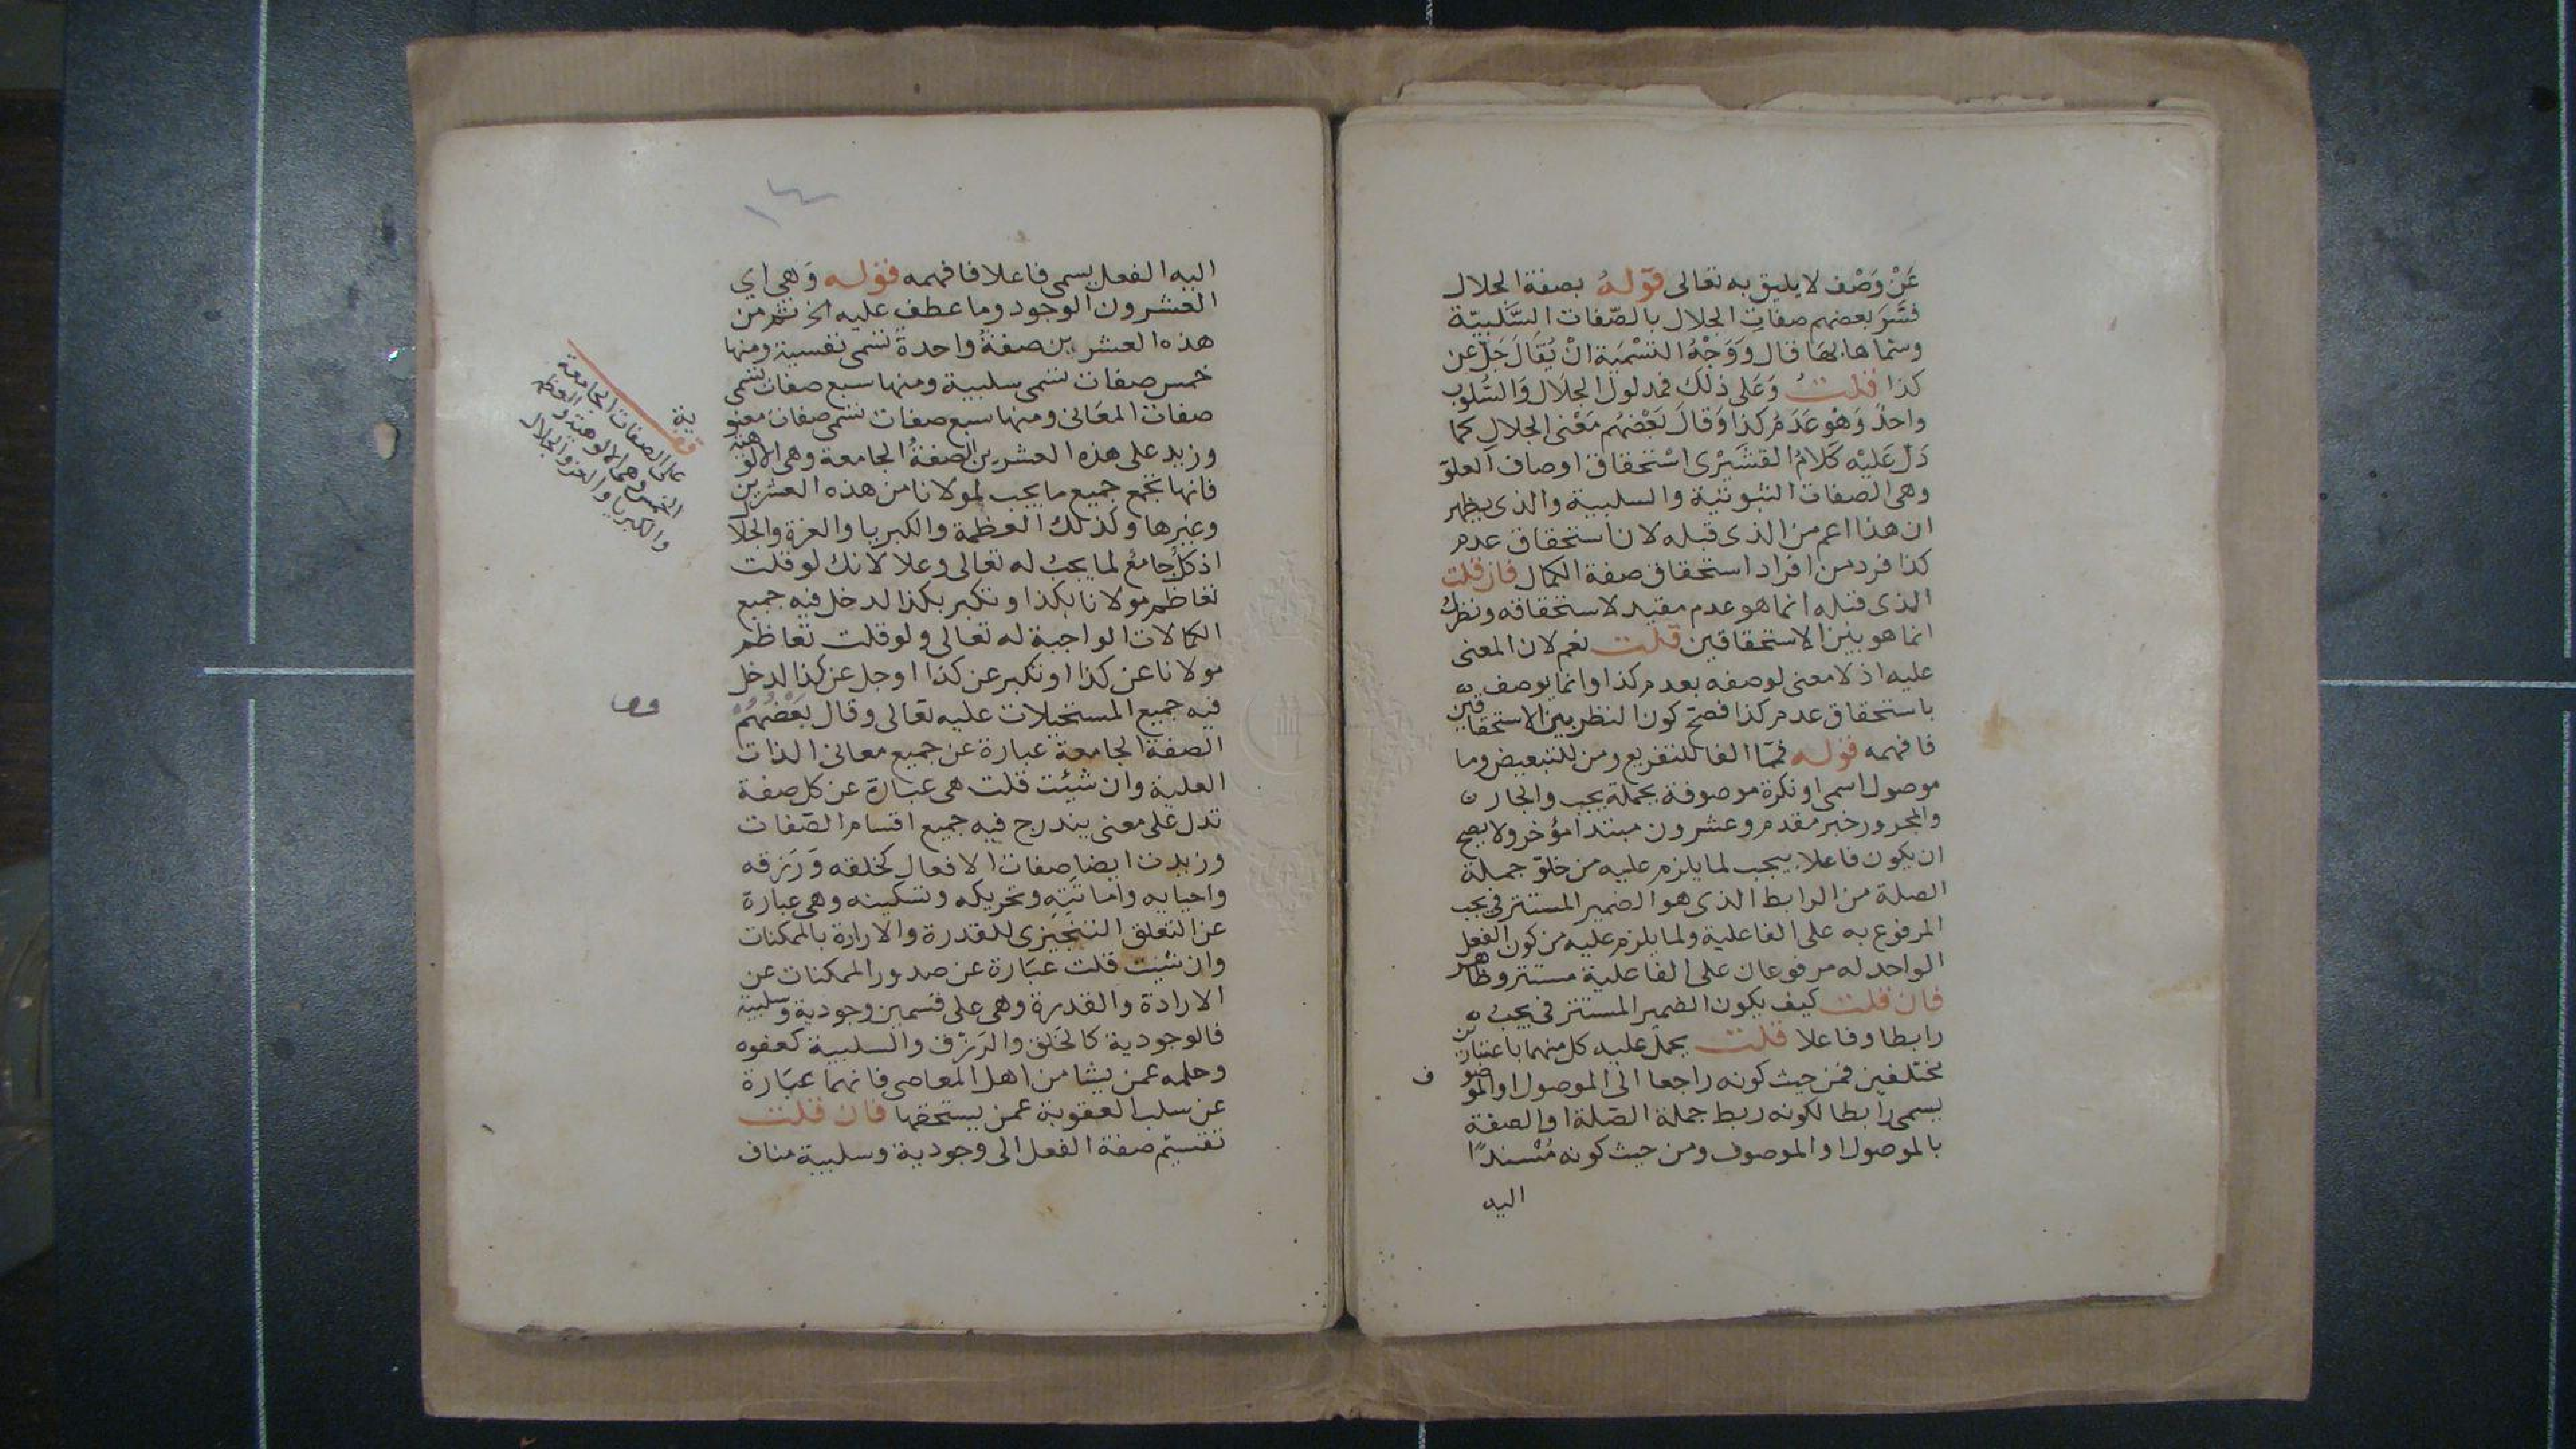 عَنْ وَصْف لا يليق به تعالى قوله بصفة الجلال
فسَّرَ بعضهم صفات الجلال بالصّفات السَّلبيّة
وسماها بها قال وَوَجْهُ التسْمية انْ يُقالَ جَلّ عن
كذا قلتُ وَعَلى ذلك فمدلول الجلال وَالسُّلوب
واحدٌ وَهُو عَدَمُ كذا وَقالَ بَعْضُهم مَعْنى الجلال كما
دَلّ عَلَيْه كَلامُ القشَيْرى اسْتحقاق اوصاف العلو
وهى الصفات الثبوتية والسلبية والذى يظهر
ان هذا اعم من الذى قبله لان استحقاق عدم
كذا فرد من افراد استحقاق صفة الكمال فان قلت
الذى قبله انما هو عدم مقيد لا استحقاقه ونظرك
انما هو بين الاستحقاقين قلت نعم لان المعنى
عليه اذ لا معنى لوصفه بعدم كذا وانما يوصف
باستحقاق عدم كذا فصح كون النظر بين الاستحقاقين
فافهمه قوله فممّا الفا للتفريع ومن للتبعيض وما
موصول اسمى او نكرة موصوفة بجملة يجب والجار
والمجرور خبر مقدم وعشرون مبتدا مؤخر ولا يصح
ان يكون فاعلا بيجب لما يلزم عليه من خلو جملة
الصلة من الرابط الذى هو الضمير المستتر فى يجب
المرفوع به على الفاعلية ولما يلزم عليه من كون الفعل
الواحد له مرفوعان على الفاعلية مستتر وظاهر
فان قلت كيف يكون الضمير المستتر فى يجب
رابطا وفاعلا قلت يحمل عليه كل منهما باعتبارين
مختلفين فمن حيث كونه راجعا الى الموصول او الموصوف
يسمى رابطا لكونه ربط جملة الصّلة او الصفة
بالموصول او الموصوف ومن حيث كونه مُسْندًا
اليه
١٤
اليه الفعل يسمى فاعلا فافهمه قوله وَهى اى
العشرون الوجود وما عطف عليه الخ ثم من
هذه العشرين صفةً واحدةً تسمى نفسية ومنها
خمس صفات تسمى سلبية ومنها سبع صفات تسمى
صفات المعَانى ومنها سبع صفات تسمى صفات معنو
ية
وزيد على هذه العشرين الصفةُ الجامعة وهى الالوهية
فانها تجمع جميع ما يجب لمولانا من هذه العشرين
وغيرها وكذلك العظمة والكبريا والعزة والجلا
اذ كلٌ جامعٌ لما يجبُ له تعالى وعلا لانك لو قلت
تعاظم مولانا بكذا وتكبر بكذا لدخل فيه جميع
الكمالات الواجبة له تعالى ولو قلت تعاظم
مولانا عن كذا او تكبر عن كذا او جل عن كذا لدخل
فيه جميع المستحيلات عليه تعالى وقال بَعْضُهُمْ
الصفة الجامعة عبارة عن جميع معانى الذات
العلية وان شئت قلت هى عبارة عن كل صفة
تدل على معنى يندرج فيه جميع اقسام الصّفات
وزيدت ايضا صفات الافعال كخلقه وَرَزقه
واحيايه واماتَتِه وتحريكه وتسكينه وهى عبارة
عن التعلق التنجيزى للقدرة والارادة بالممكنات
وان شئت قلت عبَارة عن صدور الممكنات عن
الارادة والقدرة وهى على قسمين وجودية وسلبية
فالوجودية كالخَلق والرَزق والسلبية كعفوه
وحلمه عمن يشا من اهل المعاصى فانهما عبَارة
عن سلب العقوبة عمن يستحقها فان قلت
تقسيم صفة الفعل الى وجودية وسلبية مناف
على الصفات الجامعة
الخمس وهى الالوهية والعظمة
والكبريا والعز والجلال